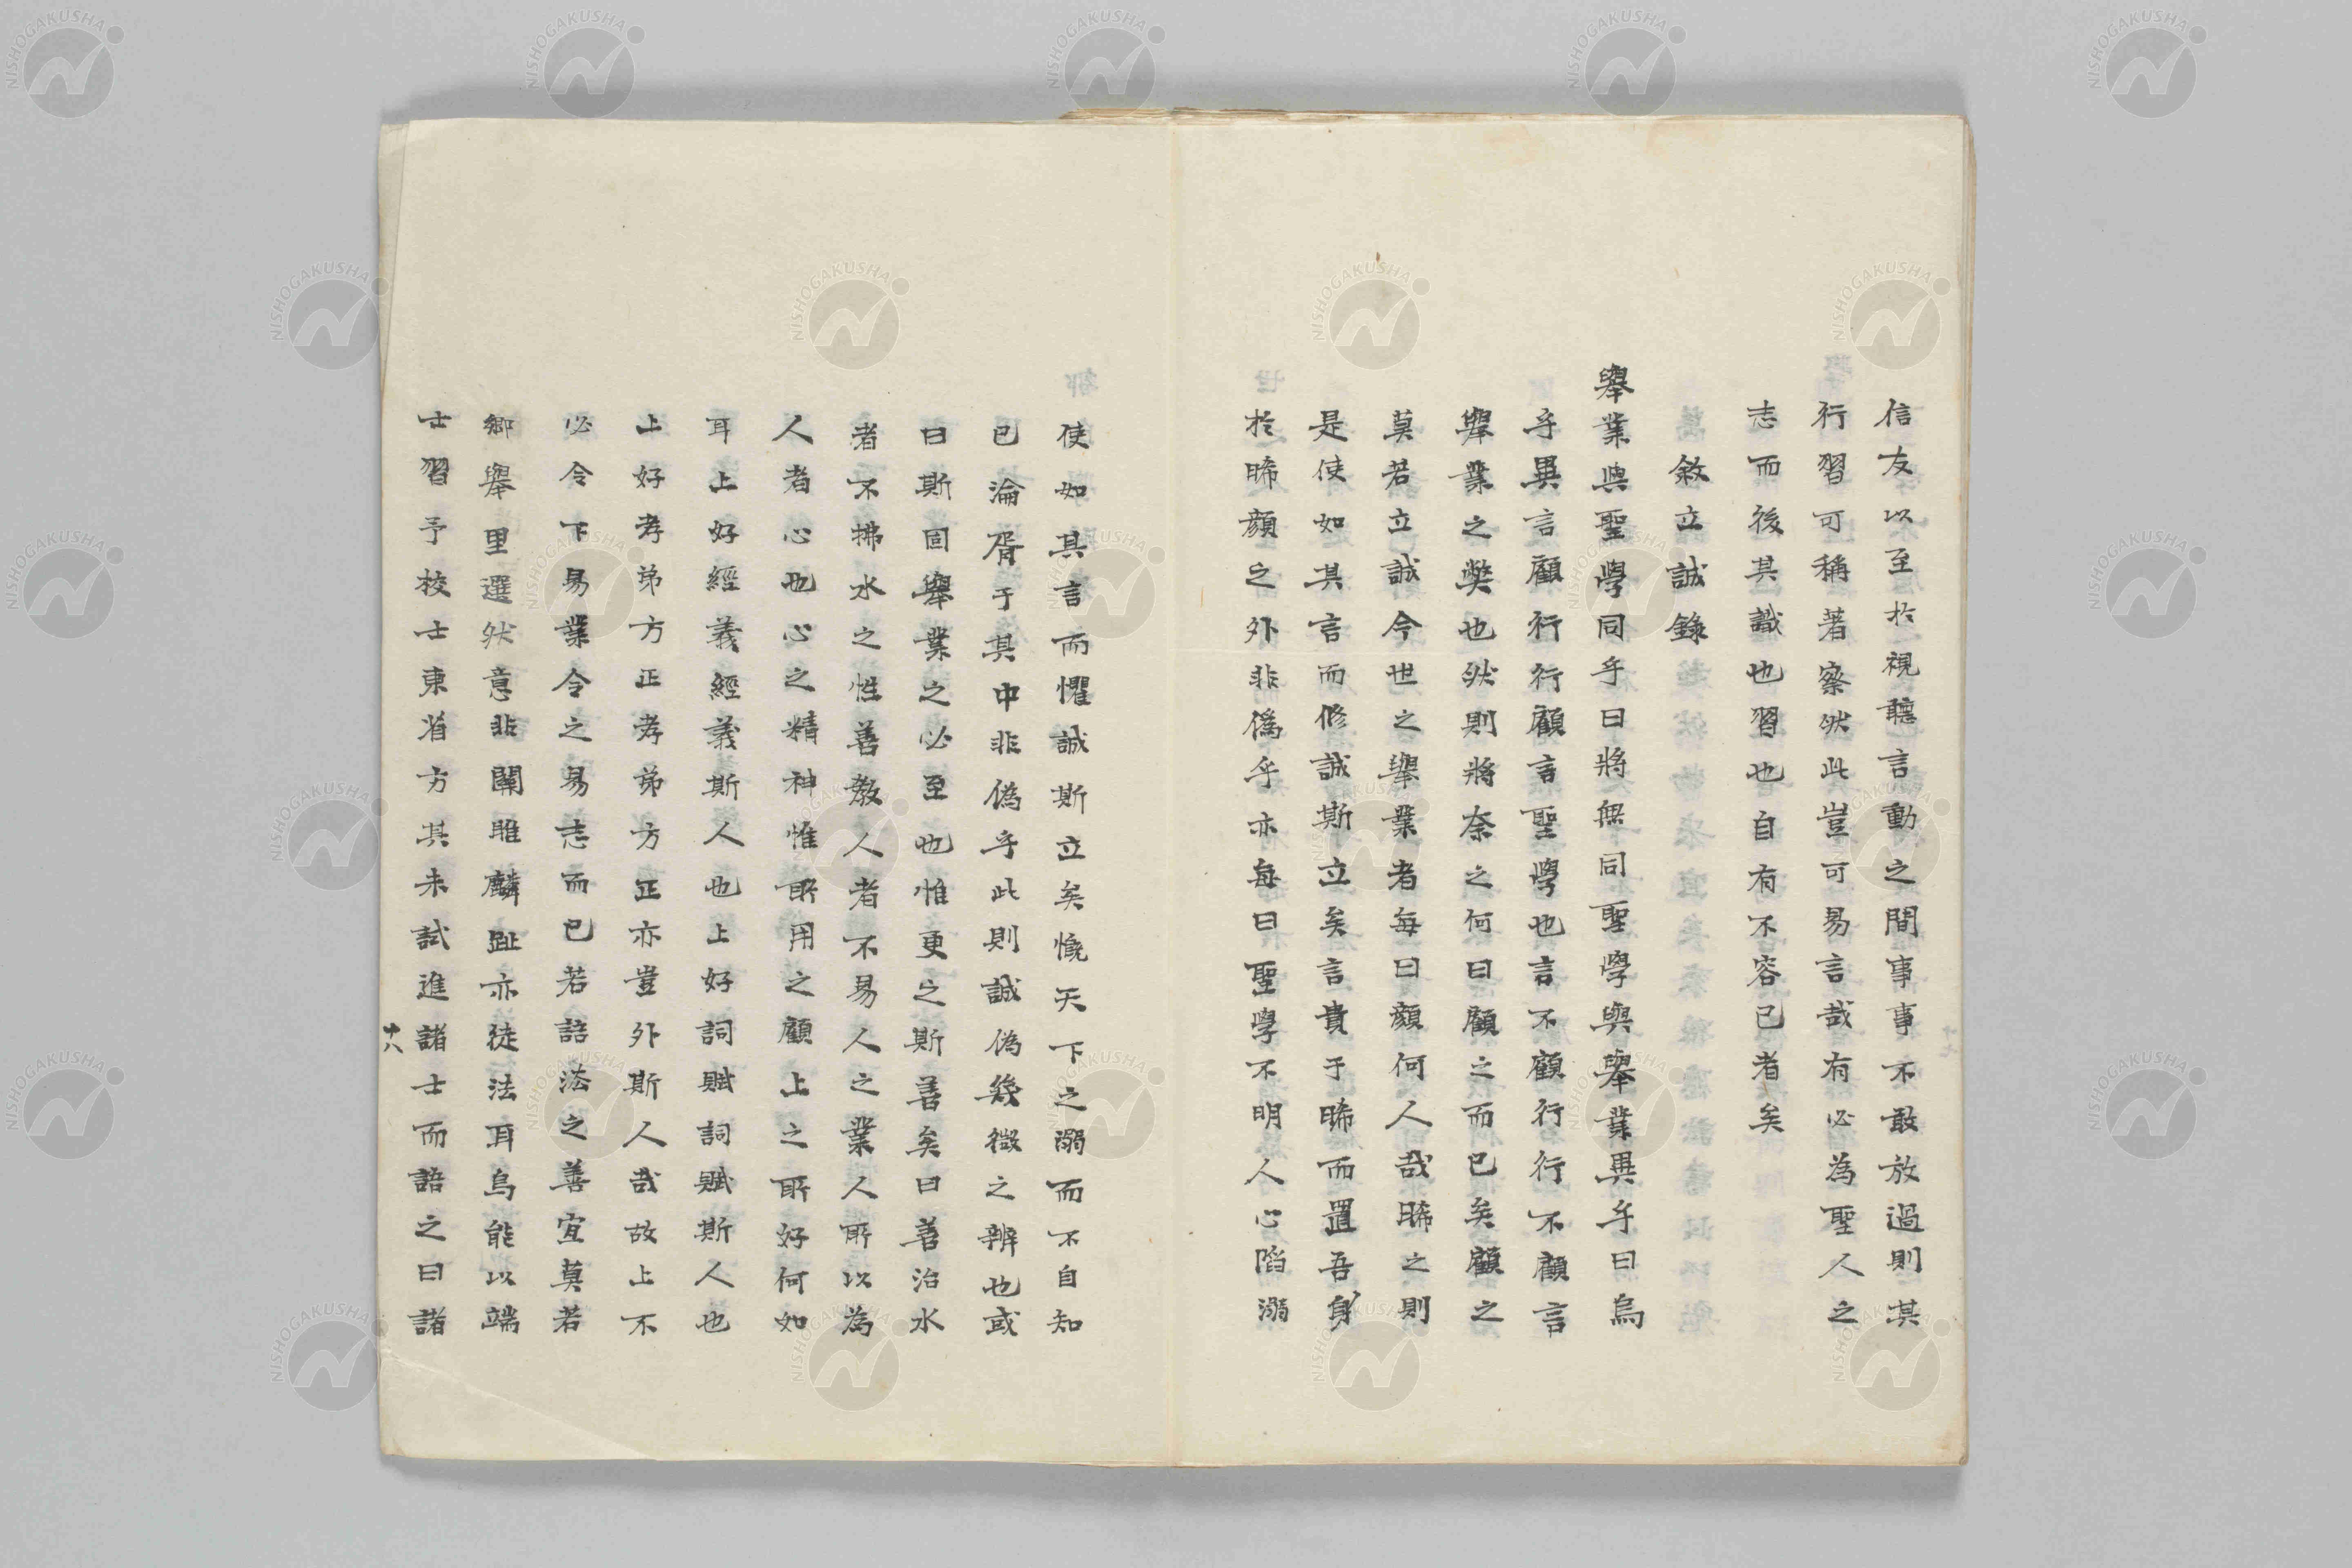 信友以至於視聽言動之間事事不敢放過則其
行習可稱著察然此豈可易言哉有必為聖人之
志而後其識也習也自有不容已者矣
敘立誠錄
舉業與聖學同乎曰將無同聖學與舉業異乎曰烏
乎異言顧行行顧言聖學也言不顧行行不顧言
舉業之弊也然則將奈之何曰顧之而已矣顧之
莫若立誠今世之舉業者每曰顏何人哉睎之則
是使如其言而修誠斯立矣言貴于睎而置吾身
於睎顏之外非僞乎亦每曰聖學不明人心陷溺
使如其言而懼誠斯立矣慨天下之溺而不自知
已淪胥于其中非偽乎此則誠偽幾微之辨也或
曰斯固舉業之必至也惟更之斯善矣曰善治水
者不拂水之性善教人者不易人之業人所以為
人者心也心之精神惟所用之顧上之所好何如
耳上好經義經義斯人也上好詞賦詞賦斯人也
上好孝弟方正孝弟方正亦豈外斯人哉故上不
必令下易業令之易志而已若語法之善宜莫若
鄉舉里選然意非關雎麟趾亦徒法耳烏能以端
士習予校士東省方其未試進諸士而語之曰諸
十八
NISHOGAKUSHA